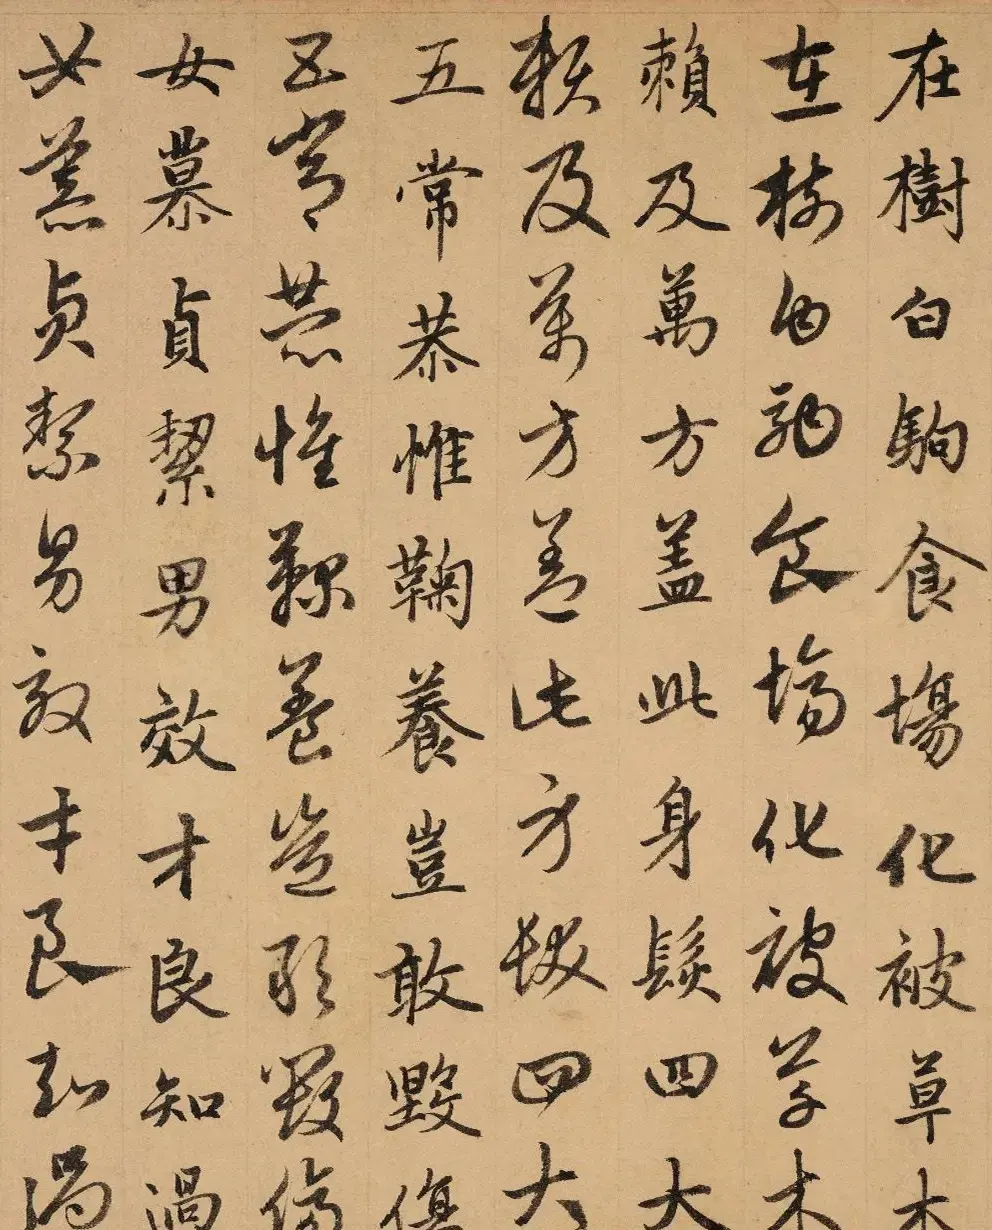 在樹白駒食場化被草木
在樹白駒食場化被草木
賴及萬方盖此身髮四大
賴及萬方盖此身髮四大
五常恭惟鞠養豈敢毀傷
五常恭惟鞠養豈敢毀傷
女慕貞絜男效才良知過
女慕貞絜男效才良知過